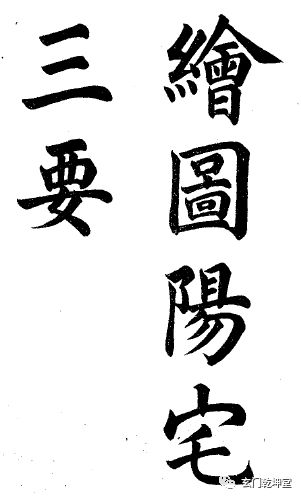 繪圖陽宅
三要
玄门乾坤堂